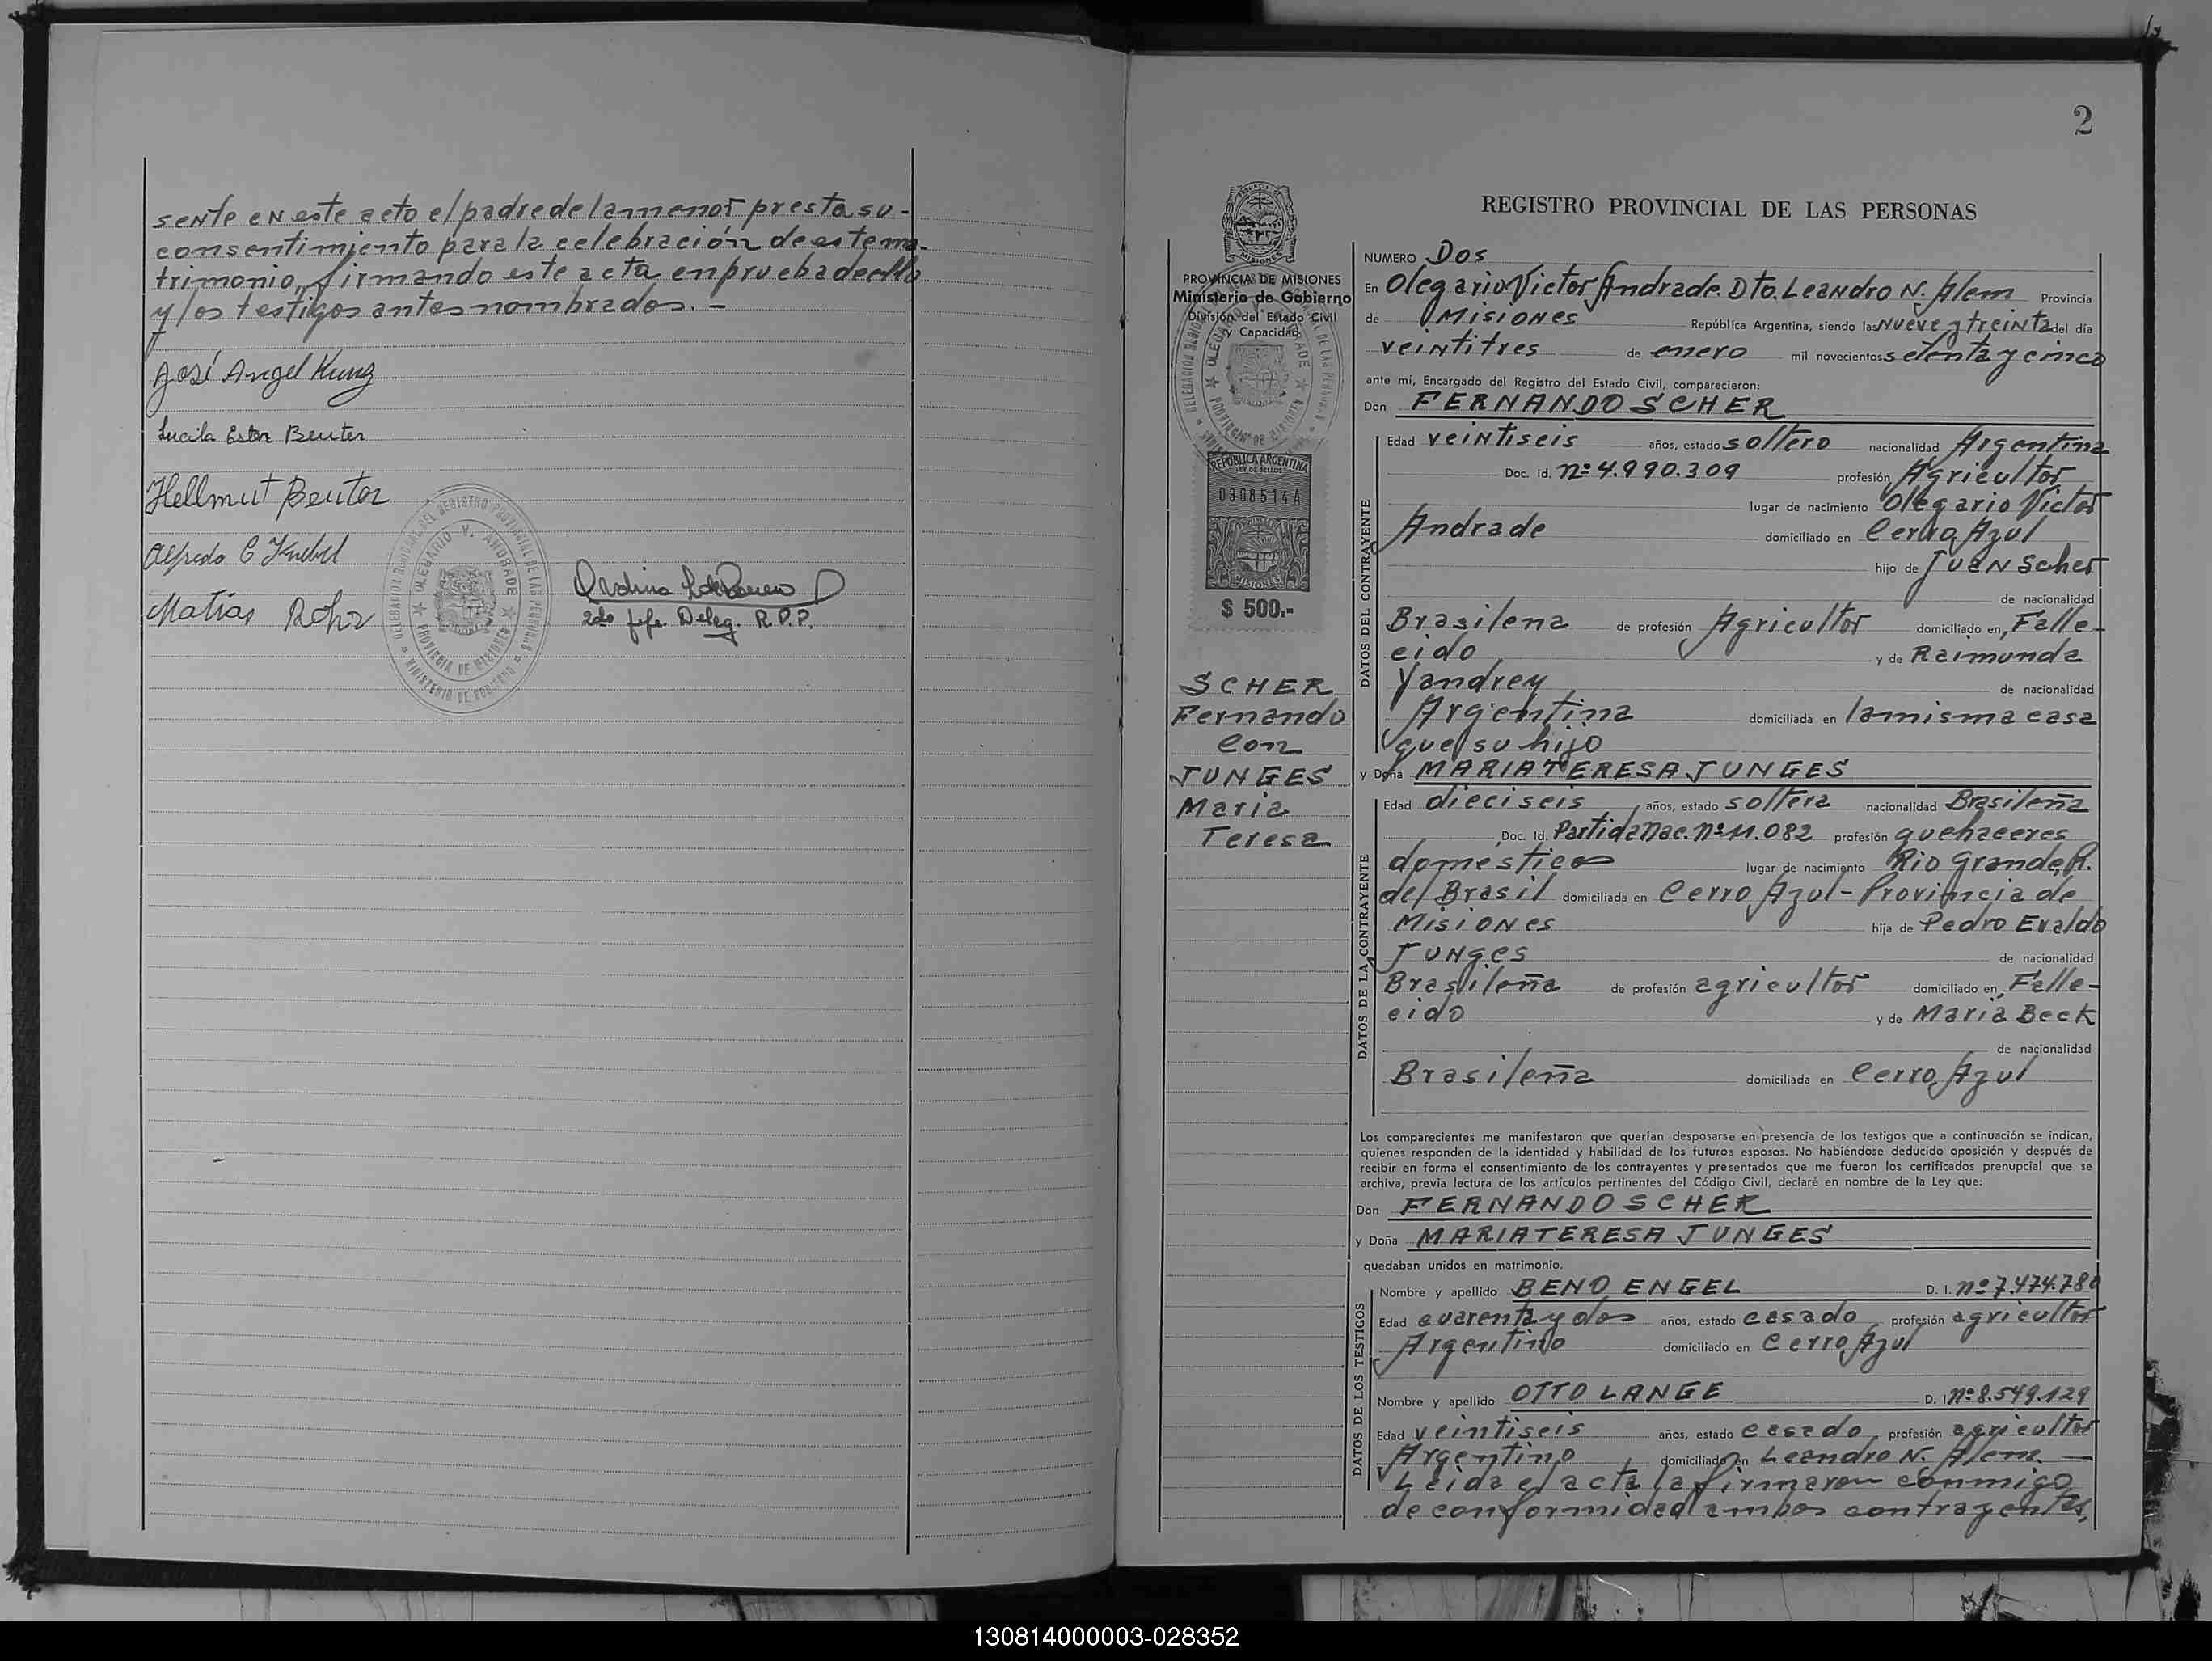 sente en este acto el padre de la menor presta su-
consentimiento para la celebración de este ma-
trimonio, firmando este acta en prueba de ello
y los testigos antes nombrados. -
José Angel Kunz
Lucila Ester Beuter
Hellmut Beuter
Alfredo C Knebel
Matias Rohr
2do Jefe. Deleg. R.P.P.
DELEGACION REGIONAL DEL REGISTRO PROVINCIAL DE LAS PERSONAS
OLEGARIO V. ANDRADE
PROVINCIA DE MISIONES
MINISTERIO DE GOBIERNO
2
REGISTRO PROVINCIAL DE LAS PERSONAS
PROVINCIA DE MISIONES
Ministerio de Gobierno
División del Estado Civil
y Capacidad
REPUBLICA ARGENTINA
LEY DE SELLOS
0308514A
MISIONES
$ 500.-
SCHER
Fernando
Con
JUNGES
Maria
Teresa
NUMERO Dos
En Olegario Victor Andrade. Dto. Leandro N. Alem Provincia
de Misiones República Argentina, siendo las nueve y treinta del día
veintitres de enero mil novecientos setenta y cinco
ante mí, Encargado del Registro del Estado Civil, comparecieron:
Don FERNANDO SCHER
DATOS DEL CONTRAYENTE
Edad veintiseis años, estado soltero nacionalidad Argentina
Doc. Id. Nº 4.990.309 profesión Agricultor
lugar de nacimiento Olegario Victor
Andrade domiciliado en Cerro Azul
hijo de Juan Scher
de nacionalidad
Brasilena de profesión Agricultor domiciliado en, Falle-
cido y de Raimunda
Yandrey de nacionalidad
Argentina domiciliada en la misma casa
que su hijo
y Doña MARIA TERESA JUNGES
DATOS DE LA CONTRAYENTE
Edad dieciseis años, estado soltera nacionalidad Brasileña
Doc. Id. Partida Nac. Nº 11.082 profesión quehaceres
domestico lugar de nacimiento Rio Grande, R.
del Brasil domiciliada en Cerro Azul - Provincia de
Misiones hija de Pedro Evaldo
Junges de nacionalidad
Brasileña de profesión agricultor domiciliado en, Falle-
cido y de Maria Beck
de nacionalidad
Brasileña domiciliada en Cerro Azul
Los comparecientes me manifestaron que querían desposarse en presencia de los testigos que a continuación se indican,
quienes responden de la identidad y habilidad de los futuros esposos. No habiéndose deducido oposición y después de
recibir en forma el consentimiento de los contrayentes y presentados que me fueron los certificados prenupcial que se
archiva, previa lectura de los artículos pertinentes del Código Civil, declaré en nombre de la Ley que:
Don FERNANDO SCHER
y Doña MARIA TERESA JUNGES
quedaban unidos en matrimonio.
DATOS DE LOS TESTIGOS
Nombre y apellido BENO ENGEL D. I. Nº 7.474.780
Edad cuarenta y dos años, estado casado profesión agricultor
Argentino domiciliado en Cerro Azul
Nombre y apellido OTTO LANGE D. I Nº 8.549.129
Edad veintiseis años, estado casado profesión agricultor
Argentino domiciliado en Leandro N. Alem. -
Leida el acta la firmaron conmigo
de conformidad ambos contrayentes,
130814000003-028352